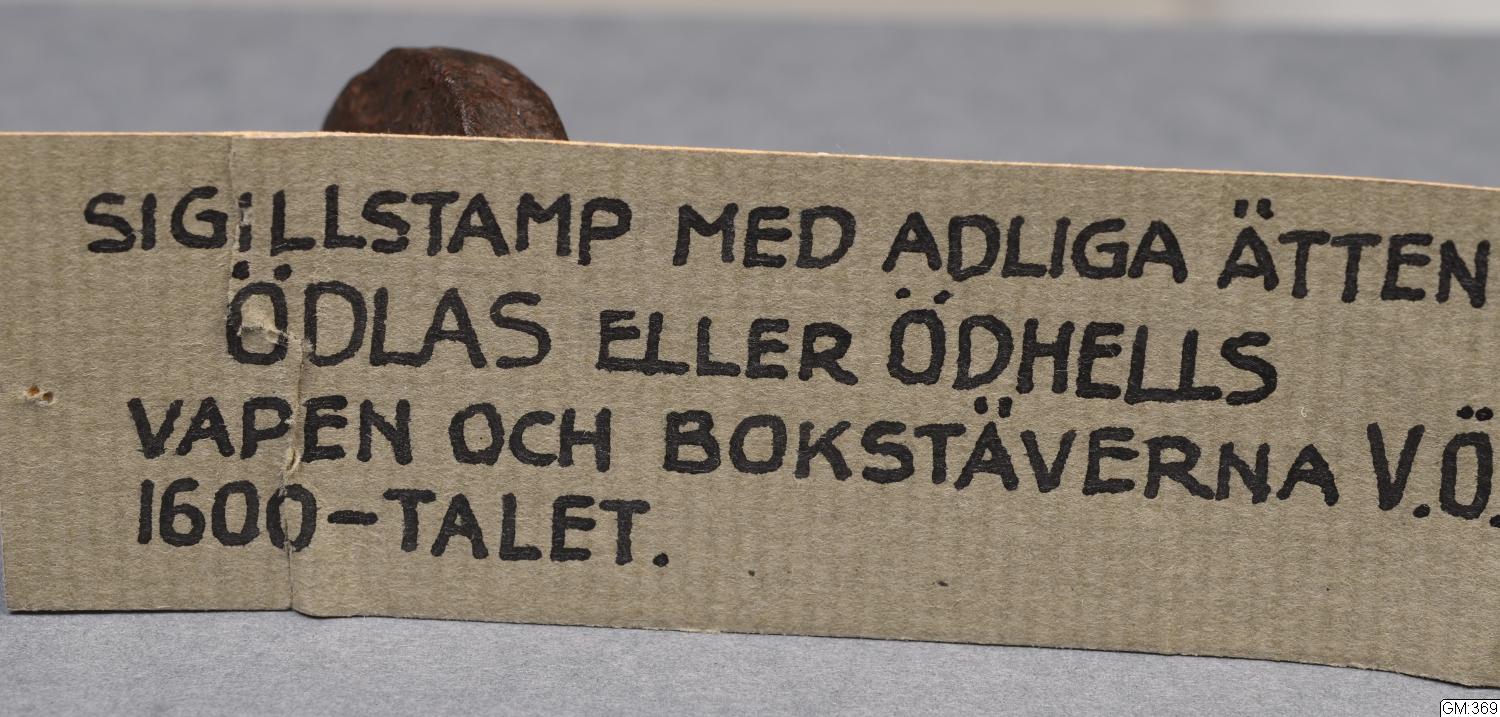 SIGILLSTAMP MED ADLIGA ÄTTEN
ÖDLAS ELLER ÖDHELLS
VAPEN OCH BOKSTÄVERNA V.Ö.
1600-TALET.
GM:369